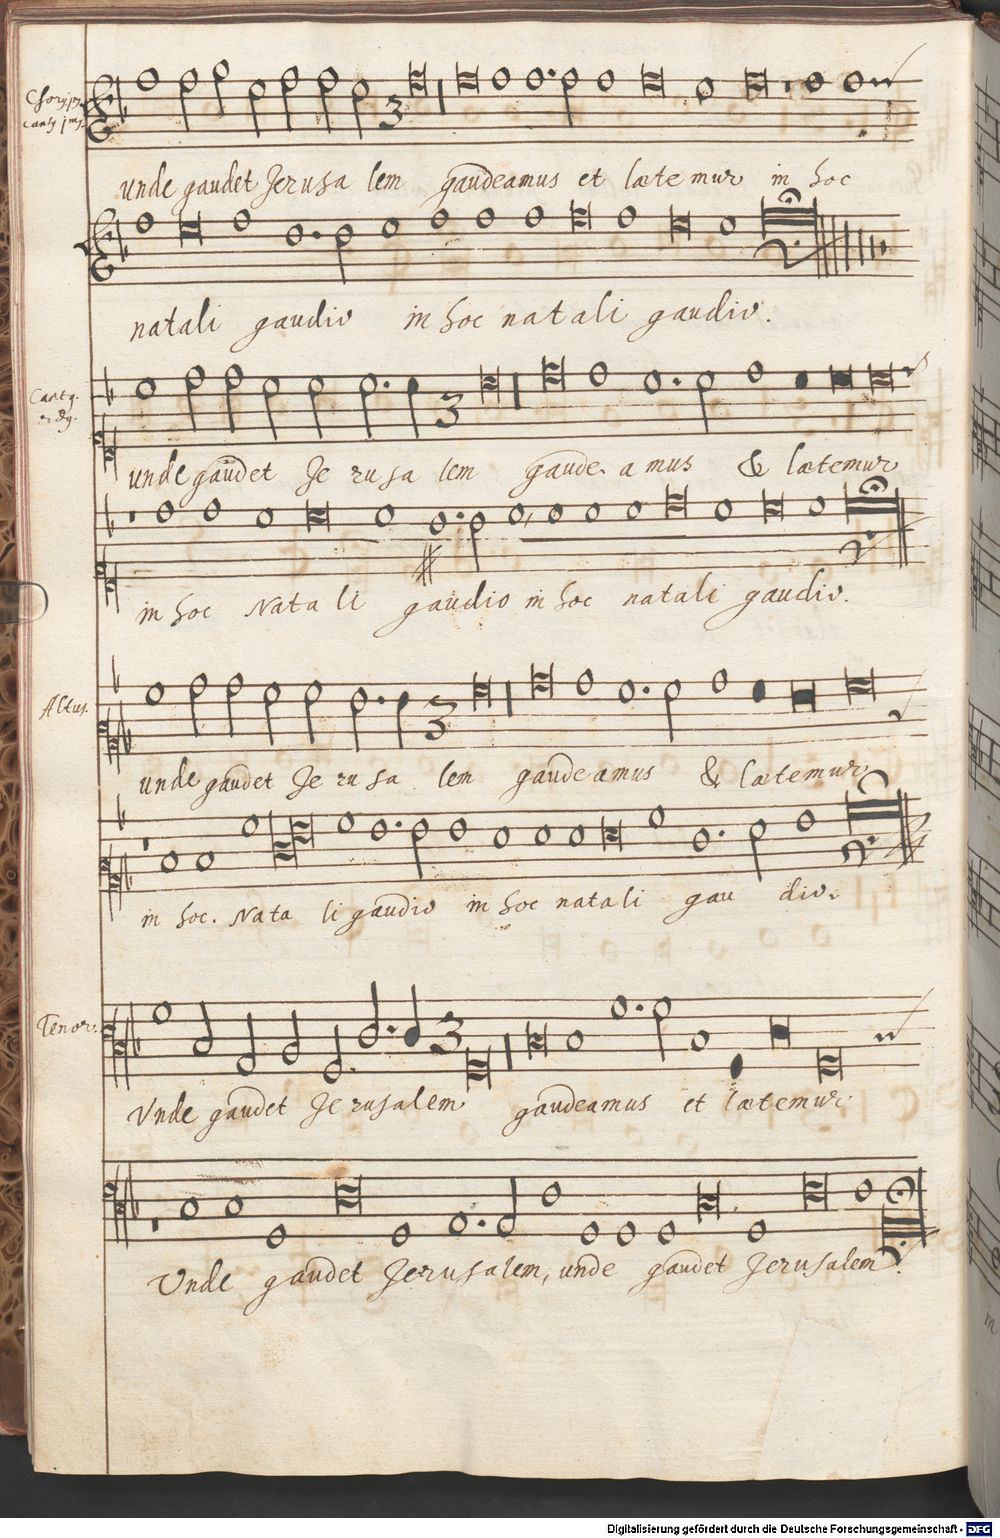 Chori pri.
Cantus jmus.
unde gaudet Jerusa lem gaudeamus et lætemur in hoc
natali gaudio in hoc natali gaudio.
Cantus. 2dus.
unde gaudet Je rusa lem gaude. amus & lætemur
in hoc Nata li gaudio in hoc natali gaudio.
Altus.
unde gaudet Je rusa lem gaudeamus & lætemur
in hoc. Nata li gaudio in hoc natali gau dio.
Tenor.
Vnde gaudet Je rusalem gaudeamus et lætemur
Vnde gaudet Jerusalem, unde gaudet Jerusalem.
Digitalisierung gefördert durch die Deutsche Forschungsgemeinschaft - DFG